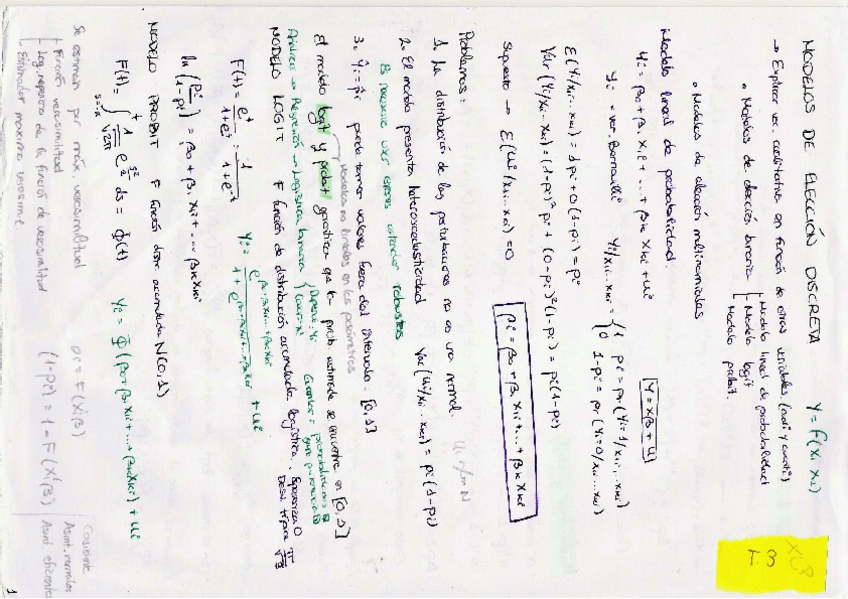 MODELOS DE ELECCIÓN DISCRETA Y = f(X₁ X₂)
T.3
→ Explicar var. cualitativa en función de otras variables. (cuali y cuanti)
• Modelos de elección binaria
Modelo lineal de probabilidad
Modelo logit
Modelo probit.
• Modelos de elección multinomiales
Modelo lineal de probabilidad.
Yi = β0 + β1 X1i + ... + βk Xki + ui
Y = Xβ + U
Yi = var. Bernouilli Yi/X1i...Xki = { 1 pi = pr (Yi = 1/X1i...Xki)
0 1-pi = pr (Yi = 0/X1i...Xki)
E(Yi/X1i...Xki) = 1·pi + 0(1-pi) = pi
Var(Yi/X1i...Xki) = (1-pi)² pi + (0-pi)² (1-pi) = pi(1-pi)
Supuesto → E(ui/X1i...Xki) = 0
pi = β0 + β1 X1i + ... + βk Xki
Problemas:
1. La distribución de las perturbaciones no es una normal.
2. El modelo presenta heteroscedasticidad Var(ui/X1i...Xki) = pi(1-pi)
usar errores estándar robustos
3. Ŷi = p̂i puede tomar valores fuera del intervalo [0,1]
Modelos no lineales en los parámetros
El modelo logit y probit garantiza que la prob. estimada se encuentre en [0,1]
Análisis → Regresión → Logística binaria
MODELO LOGIT F función de distribución acumulada logística. Esperanza 0
Desv. típica π/√3
F(t) = e^t / 1+e^t = 1 / 1+e^-t
Yi = e^β0+β1X1i+...+βkXki / 1+e^β0+β1X1i+...+βkXki + ui
ln (pi / 1-pi) = β0 + β1 X1i + ... + βk Xki
MODELO PROBIT F función distr. acumulada N(0,1)
F(t) = ∫ 1/√2π e^-s²/2 ds = Φ(t) Yi = Φ(β0 + β1 X1i + ... + βk Xki) + ui
Se estiman por máx. verosimilitud
pi = F(Xi'β)
(1-pi) = 1 - F(Xi'β)
Función verosimilitud
Log. neperiano de la función de verosimilitud
Estimador máximo verosímil
Consistente
Asint. normales
Asint. eficientes
1